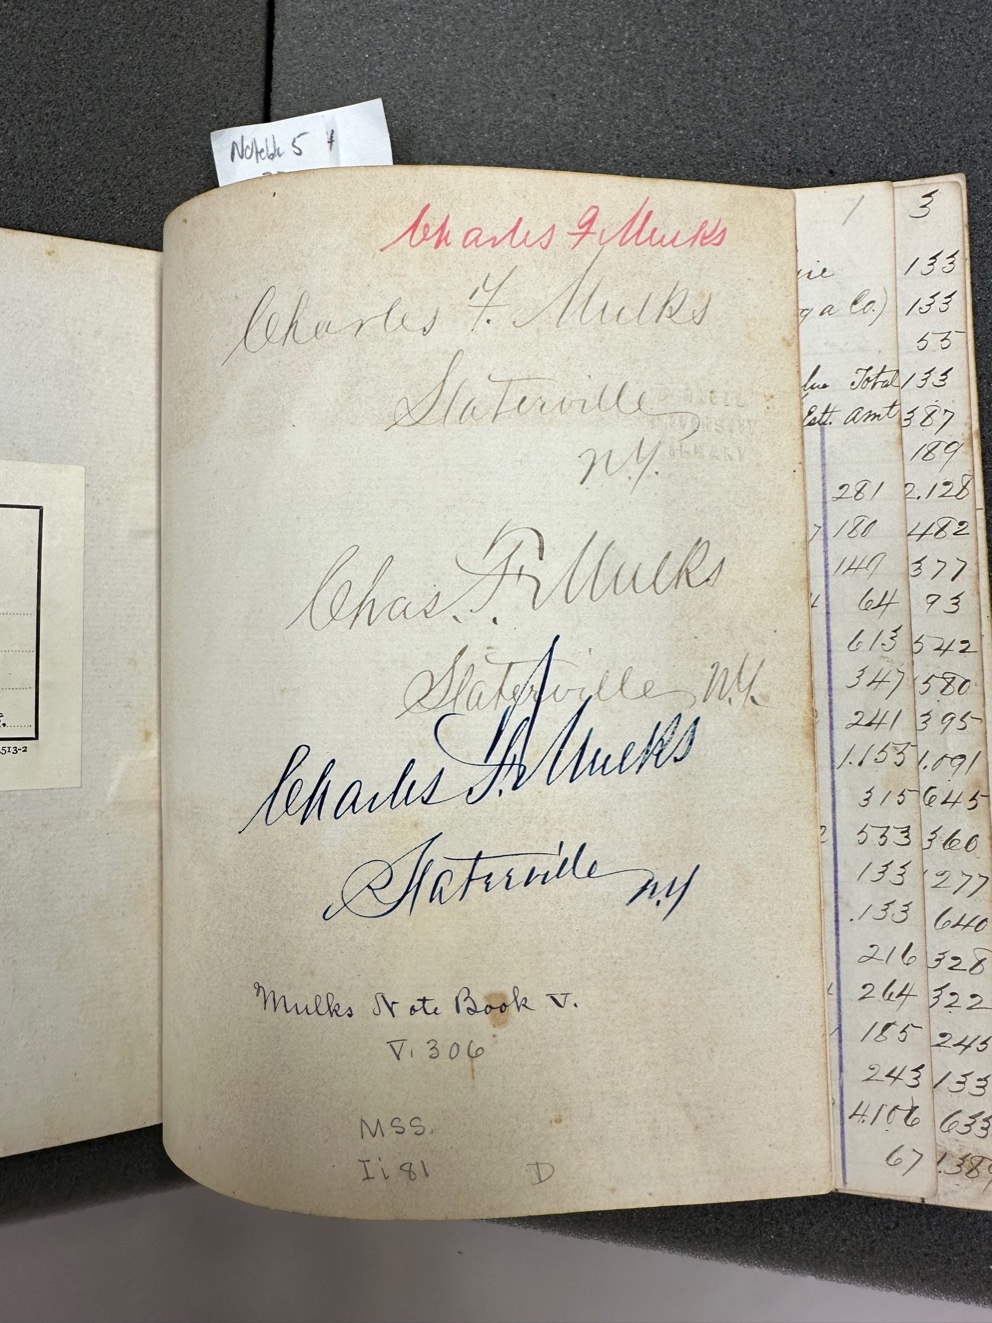 Notebk 5
Charles F. Mulks
Charles F. Mulks
Slaterville
N.Y.
Chas. F. Mulks
Slaterville N.Y.
Charles F. Mulks
Slaterville N.Y
Mulks Note Book V.
V. 306
MSS.
Ii 81 D
513-2
1 3
133
g a Co.) 133
55
Total 133
Est. Amt 387
189
281 2.128
180 482
149 377
64 93
613 542
347 580
241 395
1.155 1.091
315 645
533 360
133 277
.133 640
216 328
264 322
185 245
243 133
4.106 633
67